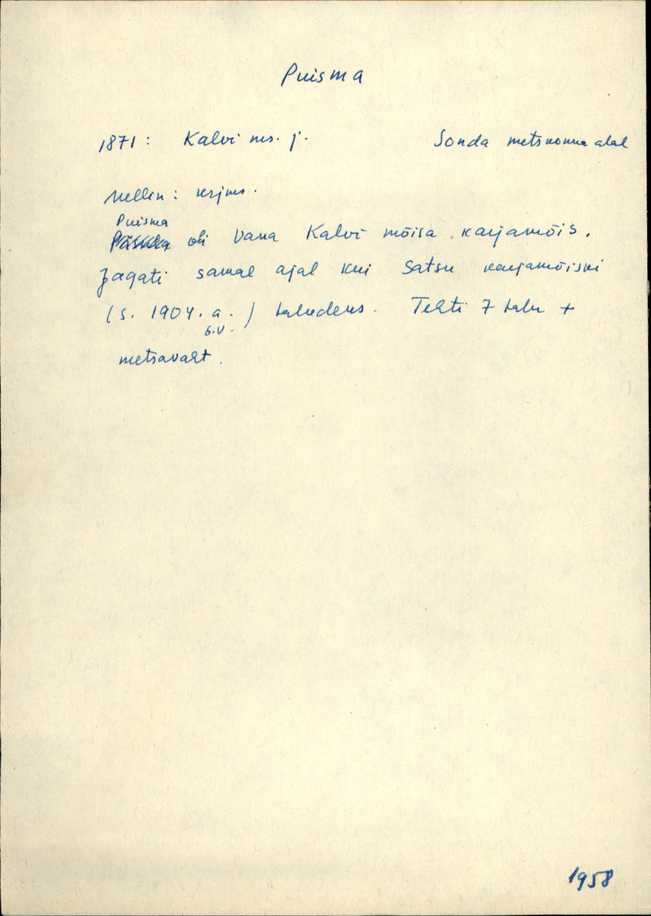 Puisma
1871: Kalvi ms. j. Sonda metskonna alal
Mellin: krjms.
Puisma
oli Vana Kalvi mõisa karjamõis.
Jagati samal ajal kui Satsu karjamõiski
(s. 1904. a. ) taludeks. Tehti 7 talu +
s.v.
metsavaht.
1958